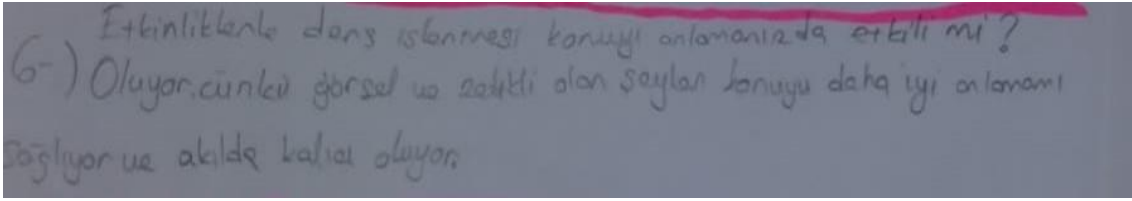 Etkinliklerle ders işlenmesi konuyu anlamanızda etkili mi?
6-) Oluyor. çünkü görsel ve zevkli olan şeyler konuyu daha iyi anlamamı
sağlıyor ve akılda kalıcı oluyor.